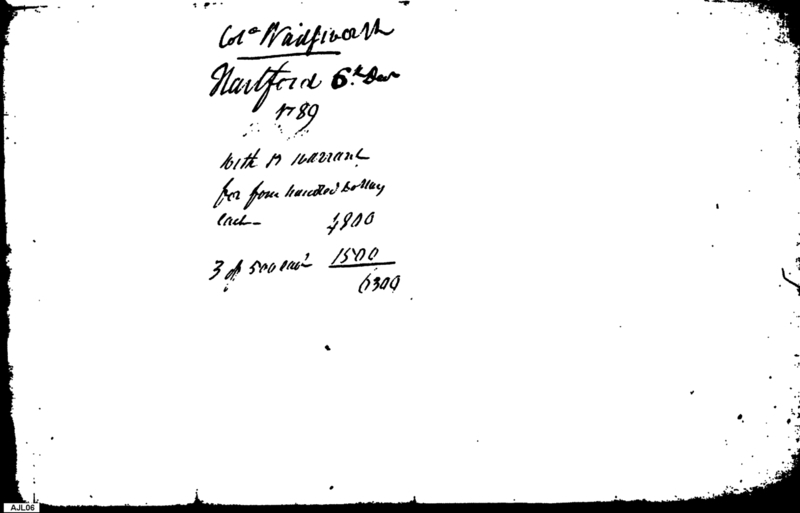 Colo Wadsworth
Hartford 6th Decr
1789
with 12 warrant
for four hundred Dollars
each 4800
3 of 500 each 1500
6300
AJL06